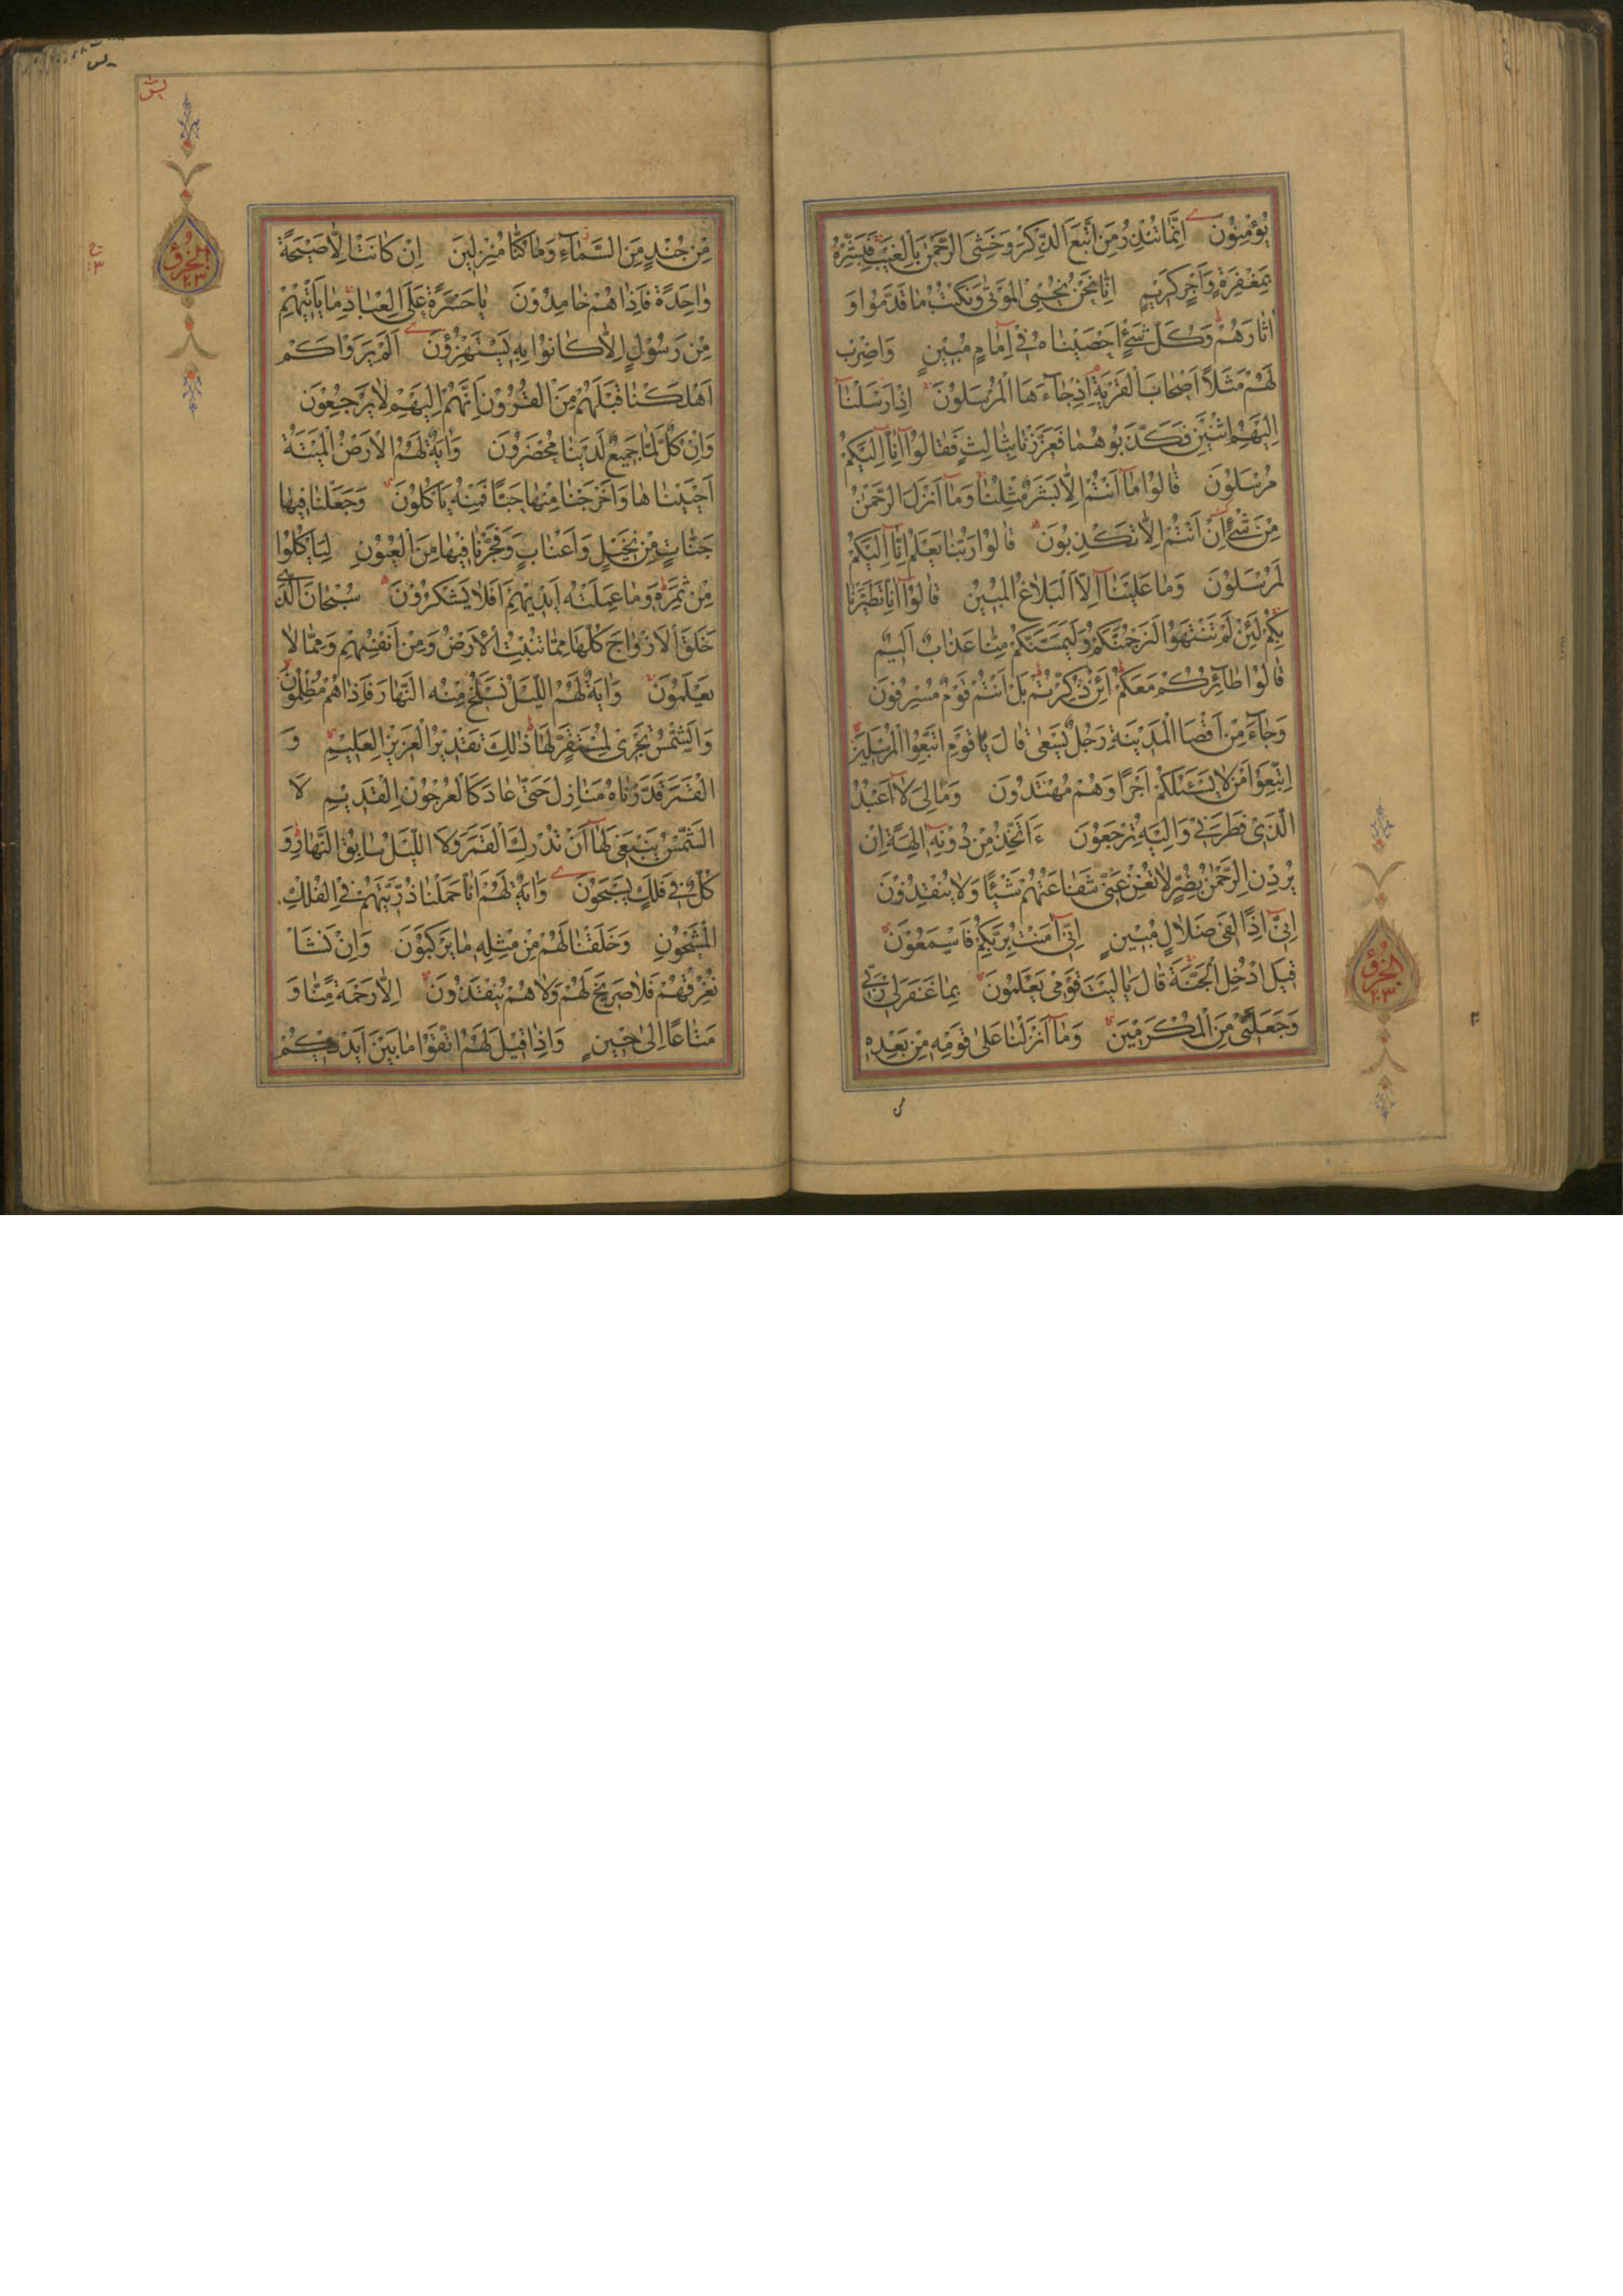 يُؤْمِنُونَ اِنَّمَا تُنْذِرُ مَنِ اتَّبَعَ الذِّكْرَ وَخَشِيَ الرَّحْمٰنَ بِالْغَيْبِ فَبَشِّرْهُ
بِمَغْفِرَةٍ وَاَجْرٍ كَرِيمٍ اِنَّا نَحْنُ نُحْيِي الْمَوْتٰى وَنَكْتُبُ مَا قَدَّمُوا وَ
اٰثَارَهُمْ وَكُلَّ شَيْءٍ اَحْصَيْنَاهُ فِي اِمَامٍ مُبِينٍ وَاضْرِبْ
لَهُمْ مَثَلًا اَصْحَابَ الْقَرْيَةِ اِذْ جَآءَهَا الْمُرْسَلُونَ اِذْ اَرْسَلْنَآ
اِلَيْهِمُ اثْنَيْنِ فَكَذَّبُوهُمَا فَعَزَّزْنَا بِثَالِثٍ فَقَالُوآ اِنَّآ اِلَيْكُمْ
مُرْسَلُونَ قَالُوا مَآ اَنْتُمْ اِلَّا بَشَرٌ مِثْلُنَا وَمَآ اَنْزَلَ الرَّحْمٰنُ
مِنْ شَيْءٍ اِنْ اَنْتُمْ اِلَّا تَكْذِبُونَ قَالُوا رَبُّنَا يَعْلَمُ اِنَّآ اِلَيْكُمْ
لَمُرْسَلُونَ وَمَا عَلَيْنَآ اِلَّا الْبَلَاغُ الْمُبِينُ قَالُوآ اِنَّا تَطَيَّرْنَا
بِكُمْ لَئِنْ لَمْ تَنْتَهُوا لَنَرْجُمَنَّكُمْ وَلَيَمَسَّنَّكُمْ مِنَّا عَذَابٌ اَلِيمٌ
قَالُوا طَآئِرُكُمْ مَعَكُمْ اَئِنْ ذُكِّرْتُمْ بَلْ اَنْتُمْ قَوْمٌ مُسْرِفُونَ
وَجَآءَ مِنْ اَقْصَا الْمَدِينَةِ رَجُلٌ يَسْعٰى قَالَ يَا قَوْمِ اتَّبِعُوا الْمُرْسَلِينَ
اِتَّبِعُوا مَنْ لَا يَسْئَلُكُمْ اَجْرًا وَهُمْ مُهْتَدُونَ وَمَا لِيَ لَآ اَعْبُدُ
الَّذِي فَطَرَنِي وَاِلَيْهِ تُرْجَعُونَ ءَاَتَّخِذُ مِنْ دُونِهِ اٰلِهَةً اِنْ
يُرِدْنِ الرَّحْمٰنُ بِضُرٍّ لَا تُغْنِ عَنِّي شَفَاعَتُهُمْ شَيْئًا وَلَا يُنْقِذُونَ
اِنِّي اِذًا لَفِي ضَلَالٍ مُبِينٍ اِنِّي اٰمَنْتُ بِرَبِّكُمْ فَاسْمَعُونَ
قِيلَ ادْخُلِ الْجَنَّةَ قَالَ يَا لَيْتَ قَوْمِي يَعْلَمُونَ بِمَا غَفَرَ لِي رَبِّي
وَجَعَلَنِي مِنَ الْمُكْرَمِينَ وَمَآ اَنْزَلْنَا عَلٰى قَوْمِهِ مِنْ بَعْدِهِ
الجزؤ
٢٣
يس
مِنْ جُنْدٍ مِنَ السَّمَآءِ وَمَا كُنَّا مُنْزِلِينَ اِنْ كَانَتْ اِلَّا صَيْحَةً
وَاحِدَةً فَاِذَا هُمْ خَامِدُونَ يَا حَسْرَةً عَلَى الْعِبَادِ مَا يَاْتِيهِمْ
مِنْ رَسُولٍ اِلَّا كَانُوا بِهِ يَسْتَهْزِؤُنَ اَلَمْ يَرَوْا كَمْ
اَهْلَكْنَا قَبْلَهُمْ مِنَ الْقُرُونِ اَنَّهُمْ اِلَيْهِمْ لَا يَرْجِعُونَ
وَاِنْ كُلٌّ لَمَّا جَمِيعٌ لَدَيْنَا مُحْضَرُونَ وَاٰيَةٌ لَهُمُ الْاَرْضُ الْمَيْتَةُ
اَحْيَيْنَاهَا وَاَخْرَجْنَا مِنْهَا حَبًّا فَمِنْهُ يَاْكُلُونَ وَجَعَلْنَا فِيهَا
جَنَّاتٍ مِنْ نَخِيلٍ وَاَعْنَابٍ وَفَجَّرْنَا فِيهَا مِنَ الْعُيُونِ لِيَاْكُلُوا
مِنْ ثَمَرِهِ وَمَا عَمِلَتْهُ اَيْدِيهِمْ اَفَلَا يَشْكُرُونَ سُبْحَانَ الَّذِي
خَلَقَ الْاَزْوَاجَ كُلَّهَا مِمَّا تُنْبِتُ الْاَرْضُ وَمِنْ اَنْفُسِهِمْ وَمِمَّا لَا
يَعْلَمُونَ وَاٰيَةٌ لَهُمُ اللَّيْلُ نَسْلَخُ مِنْهُ النَّهَارَ فَاِذَا هُمْ مُظْلِمُونَ
وَالشَّمْسُ تَجْرِي لِمُسْتَقَرٍّ لَهَا ذٰلِكَ تَقْدِيرُ الْعَزِيزِ الْعَلِيمِ وَ
الْقَمَرَ قَدَّرْنَاهُ مَنَازِلَ حَتّٰى عَادَ كَالْعُرْجُونِ الْقَدِيمِ لَا
الشَّمْسُ يَنْبَغِي لَهَآ اَنْ تُدْرِكَ الْقَمَرَ وَلَا اللَّيْلُ سَابِقُ النَّهَارِ وَ
كُلٌّ فِي فَلَكٍ يَسْبَحُونَ وَاٰيَةٌ لَهُمْ اَنَّا حَمَلْنَا ذُرِّيَّتَهُمْ فِي الْفُلْكِ
الْمَشْحُونِ وَخَلَقْنَا لَهُمْ مِنْ مِثْلِهِ مَا يَرْكَبُونَ وَاِنْ نَشَاْ
نُغْرِقْهُمْ فَلَا صَرِيخَ لَهُمْ وَلَا هُمْ يُنْقَذُونَ اِلَّا رَحْمَةً مِنَّا وَ
مَتَاعًا اِلٰى حِينٍ وَاِذَا قِيلَ لَهُمُ اتَّقُوا مَا بَيْنَ اَيْدِيكُمْ
الجزؤ
٢٣